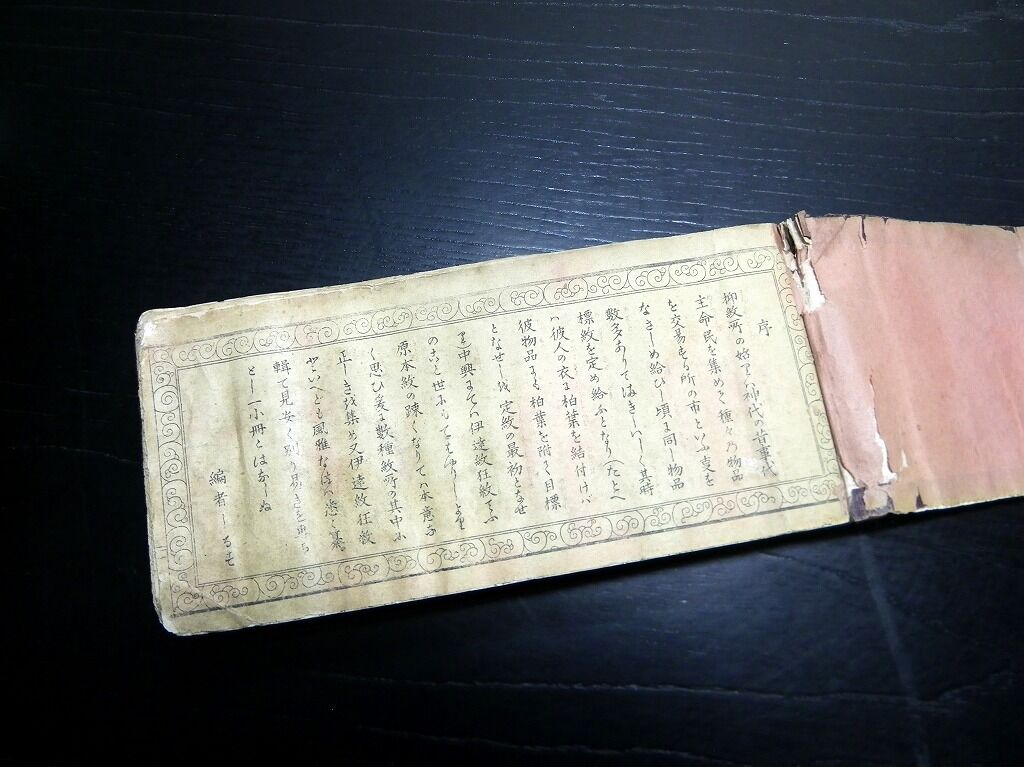 序
抑紋所の始りハ神代の昔事代
主命民を集めて種々乃物品
を交易する所の市といふ支を
なさしめ給ひし頃に同し物品
数多ありてまぎらハしく其時
標紋を定め給ふとなり(たとへ
ハ彼人の衣に柏葉を結付けバ
彼物品にも柏葉を附て目標
となせしを定紋の最初となせ
り中興にてハ伊達紋狂紋てふ
のこと世に
原本紋の疎くなりてハ本意な
く思ひ爰に数種紋所の其中に
正しきを集め又伊達紋狂紋
といへとも風雅なるハ悉く纂
輯て見安く別り易きを専ら
とし一小冊とはなしぬ
編者しるす